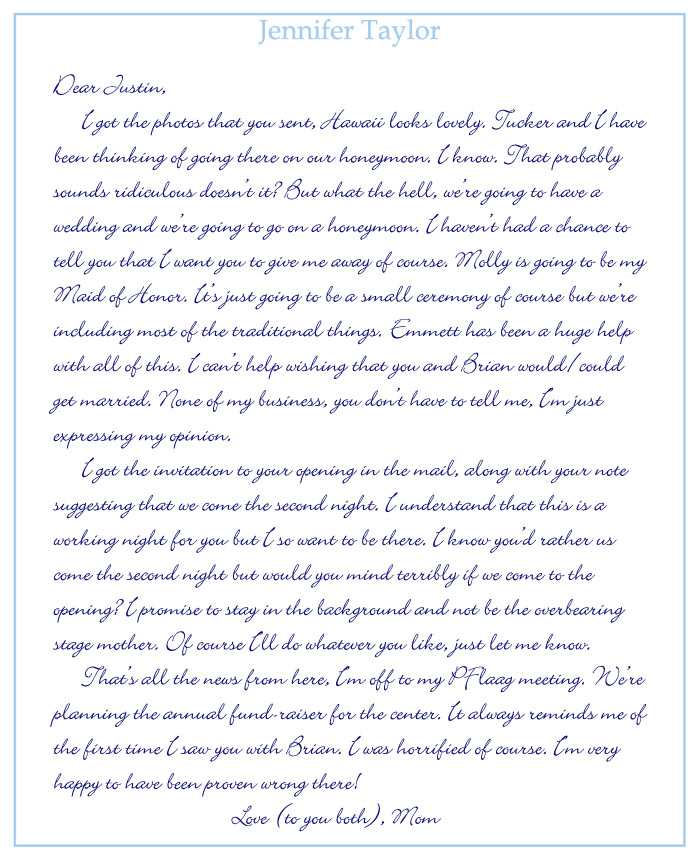 Jennifer Taylor
Dear Justin,
I got the photos that you sent, Hawaii looks lovely. Tucker and I have
been thinking of going there on our honeymoon. I know. That probably
sounds ridiculous doesn't it? But what the hell, we're going to have a
wedding and we're going to go on a honeymoon. I haven't had a chance to
tell you that I want you to give me away of course. Molly is going to be my
Maid of Honor. It's just going to be a small ceremony of course but we're
including most of the traditional things. Emmett has been a huge help
with all of this. I can't help wishing that you and Brian would/could
get married. None of my business, you don't have to tell me, I'm just
expressing my opinion.
I got the invitation to your opening in the mail, along with your note
suggesting that we come the second night. I understand that this is a
working night for you but I so want to be there. I know you'd rather us
come the second night but would you mind terribly if we come to the
opening? I promise to stay in the background and not be the overbearing
stage mother. Of course I'll do whatever you like, just let me know.
That's all the news from here, I'm off to my PFlaag meeting. We're
planning the annual fund-raiser for the center. It always reminds me of
the first time I saw you with Brian. I was horrified of course. I'm very
happy to have been proven wrong there!
Love (to you both), Mom